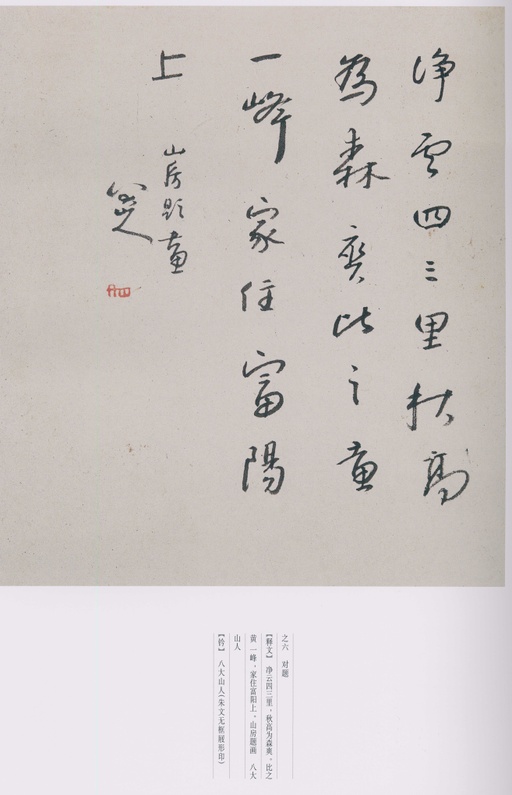 净雲四三里秋高
為森爽比之黄
一峰家住富陽
上 山房題畫
八大山人
之六 对题
【释文】 净云四三里，秋高为森爽。比之
黄一峰，家住富阳上。山房题画 八大
山人
【钤】 八大山人(朱文无框屐形印)